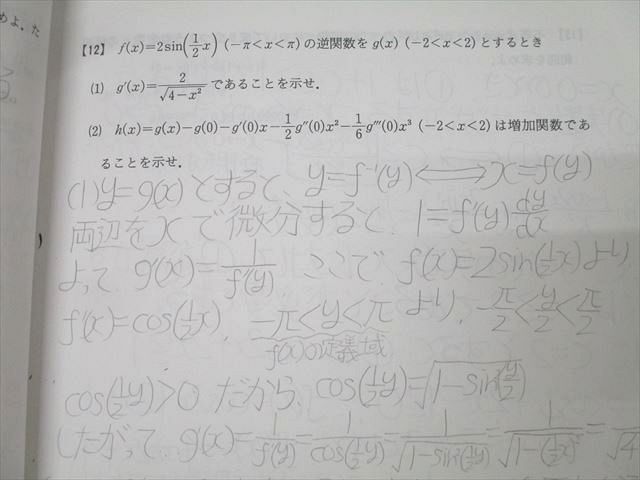 めよ．た
【12】 f(x)=2sin(1/2 x) (−π<x<π) の逆関数を g(x) (−2<x<2) とするとき
(1) g′(x)=2/√(4−x²) であることを示せ．
(2) h(x)=g(x)−g(0)−g′(0)x−1/2 g″(0)x²−1/6 g‴(0)x³ (−2<x<2) は増加関数であ
ることを示せ．
(1) y=g(x) とすると、y=f⁻¹(y) ⟺ x=f(y)
両辺をxで微分すると、1=f′(y) dy/dx
よって、g′(x)=1/f′(y)． ここで、f(x)=2sin(1/2 x) より
f′(x)=cos(1/2 x)． −π<y<π より、−π/2<y/2<π/2
f(x)の定義域
cos(1/2 y)>0 だから、cos(1/2 y)=√(1−sin²(y/2))
したがって、g′(x)=1/f′(y)=1/cos(1/2 y)=1/√(1−sin²(1/2 y))=1/√(1−(x/2)²)=